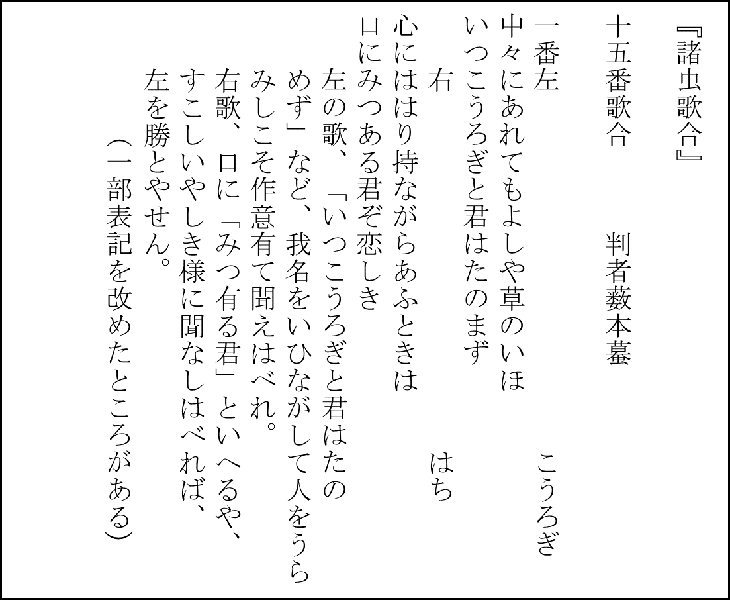 『諸虫歌合』
十五番歌合　　　判者薮本蟇
一番左　　　　　　　　　　　　　こうろぎ
中々にあれてもよしや草のいほ
いつこうろぎと君はたのまず
右　　　　　　　　　　　　　はち
心にははり持ながらあふときは
口にみつある君ぞ恋しき
左の歌、「いつこうろぎと君はたの
めず」など、我名をいひながして人をうら
みしこそ作意有て聞えはべれ。
右歌、口に「みつ有る君」といへるや、
すこしいやしき様に聞なしはべれば、
左を勝とやせん。
（一部表記を改めたところがある）